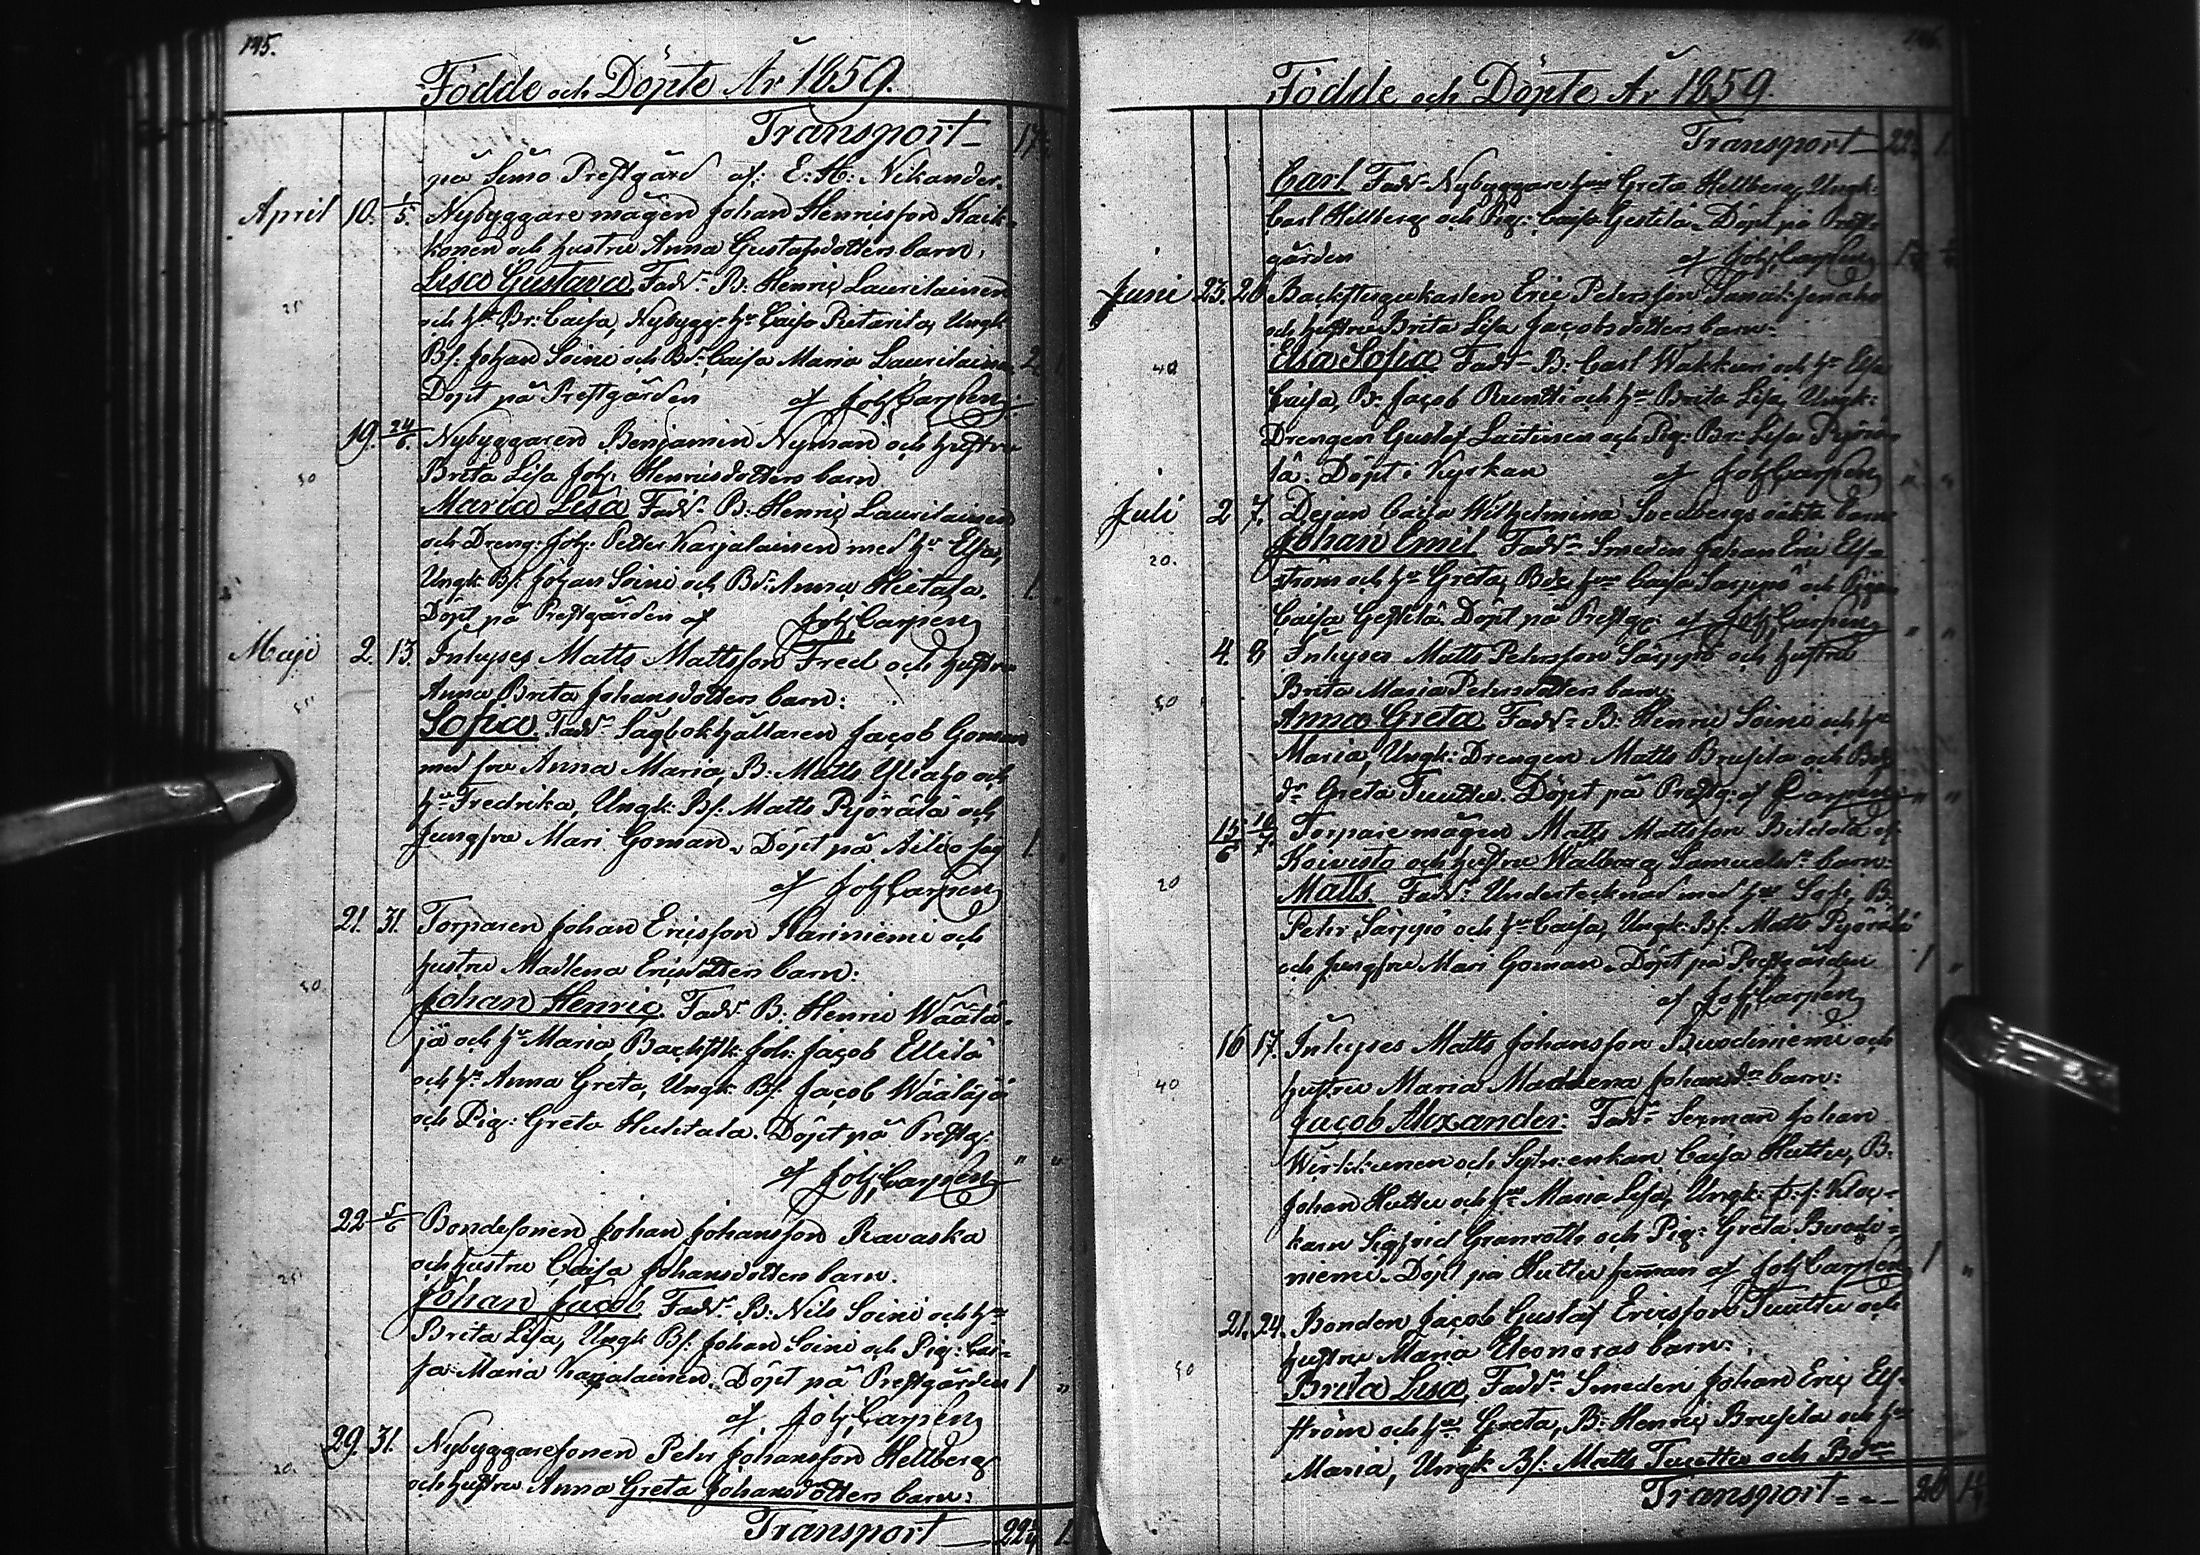 195.
Födde och Döpte År 1859.
Transport 17
på Simo Prestgård af: E: H: Nikander.
April 10. 1/5. Nybyggaremågen Johan Henricsson Kaik-
konen och hustru Anna Gustafsdotters barn,
Lisa Gustava Fadd. B: Henric Laurilainen
25
och h. Br: Caisa, Nybygg. h. Caisa Pietarila, Ungk.
Bs: Johan Soini och Bd. Caisa Maria Laurilainen 2
Döpt på Prestgården af Joh Carpén
19. 24/6. Nybyggaren Benjamin Nyman och hustru
Brita Lisa Joh: Henricsdotters barn
30
Maria Lisa Fadd. B: Henric Laurilainen
och Dreng: Joh: Petter Karjalainen med h. Elsa,
Ungk: Bs: Johan Soini och Bd. Anna Hietala. 1
Döpt på Prestgården af Joh Carpén
Maji 2. 13. Inhyses Matts Mattsson Fred och hustru
Anna Brita Johansdotters barn:
Sofia. Fadd. Sågbokhållaren Jacob Goman
med fru Anna Maria, B: Matts Yliaho och
h. Fredrika, Ungk: Bs: Matts Pyörälä och
Jungfru Mari Goman. Döpt på såg 1
af Joh Carpén
21. 31. Torparen Johan Ericsson Hariniemi och
hustru Madlena Ericsdotters barn:
50
Johan Henric. Fadd. B: Henric Wäätä-
jä och h. Maria, Joh: Jacob Ellilä
och h. Anna Greta, Ungk: Bs: Jacob Wäätäjä
och Pig: Greta Huhtala. Döpt på Prestg:
af Joh Carpén " "
22 5/6 Bondesonen Johan Johansson Ravaska
och hustru Caisa Johansdotters barn.
25
Johan Jacob Fadd. B: Nils Soini och h.
Brita Lisa, Ungk Bs: Johan Soini och Pig: Cai-
sa Maria Karjalainen. Döpt på Prestgården 1 "
af Joh Carpén
29. 31. Nybyggaresonen Pehr Johansson Hellberg
20.
och hustru Anna Greta Johansdotters barn:
Transport 22 1.
196.
Födde och Döpte År 1859
Transport 22 1.
Carl Fadd. Nybyggare h. Greta Hellberg, Ungk:
Carl Hellberg och Pig: Caisa Gestilä. Döpt på Prest-
gården af Joh Carpén 1
Juni 23. 26 Backstugukarlen Eric Pehrsson
och hustru Brita Lisa Jacobsdotters barn.
40
Elsa Sofia Fadd. B: Carl Wakkuri och h. Elsa
Caisa, B. Jacob Runtti och h. Brita Lisa, Ungk:
Drengen Gustaf Laitinen och Pig: Br: Lisa Pyörä-
lä. Döpt i Kyrkan af Joh Carpén " "
Juli 2 7. Dejan Caisa Wilhelmina Soedbergs oäkta barn
Johan Emil Fadd. Smeden Johan Eric Elf-
20.
ström och h. Greta, h. Caisa Särppö och Pigan
Caisa Gestilä. Döpt på Prestg: af Joh Carpén " "
4. 8 Inhyses Matts Pehrsson Särppö och hustru
Brita Maria Pehrsdotters barn:
30
Anna Greta Fadd. B: Henric Soini och h.
Maria, Ungk: Drengen Matts Brusila och Bde
d. Greta Tuuttu. Döpt på Prestg: af Carpén " "
15/6 10/7. Torparemågen Matts Mattsson af
Koivisto och hustru Walborg Samuelsd. barn:
20
Matts. Fadd. Undertecknad med h. Sofi, B.
Pehr Särppö och h. Caisa, Ungk: Bs: Matts Pyörälä
och Jungfru Mari Goman. Döpt på Prestgården 1 "
af Joh Carpén
16 17. Inhyses Matts Johansson Buodiniemi och
40
hustru Maria Madlena Johansd. barn:
Jacob Alexander: Fadd. Sexman Johan
Wirkkunen och Sytn:enkan Caisa Huttu, B.
Johan Huttu och h. Maria Lisa, Ungk: Kloc-
karn Sigfrid Granroth och Pig: Greta Buodi-
niemi. Döpt på Huttu hemman af Joh Carpén 1 "
21. 24. Bonden Jacob Gustaf Ericsson Tuuttu och
hustru Maria Eleonoras barn:
30
Brita Lisa, Fadd. Smeden Johan Eric Elf-
ström och h. Greta, B: Henric Brusila och h.
Maria, Ungk: Bs: Matts Tuuttu och Bd.
Transport